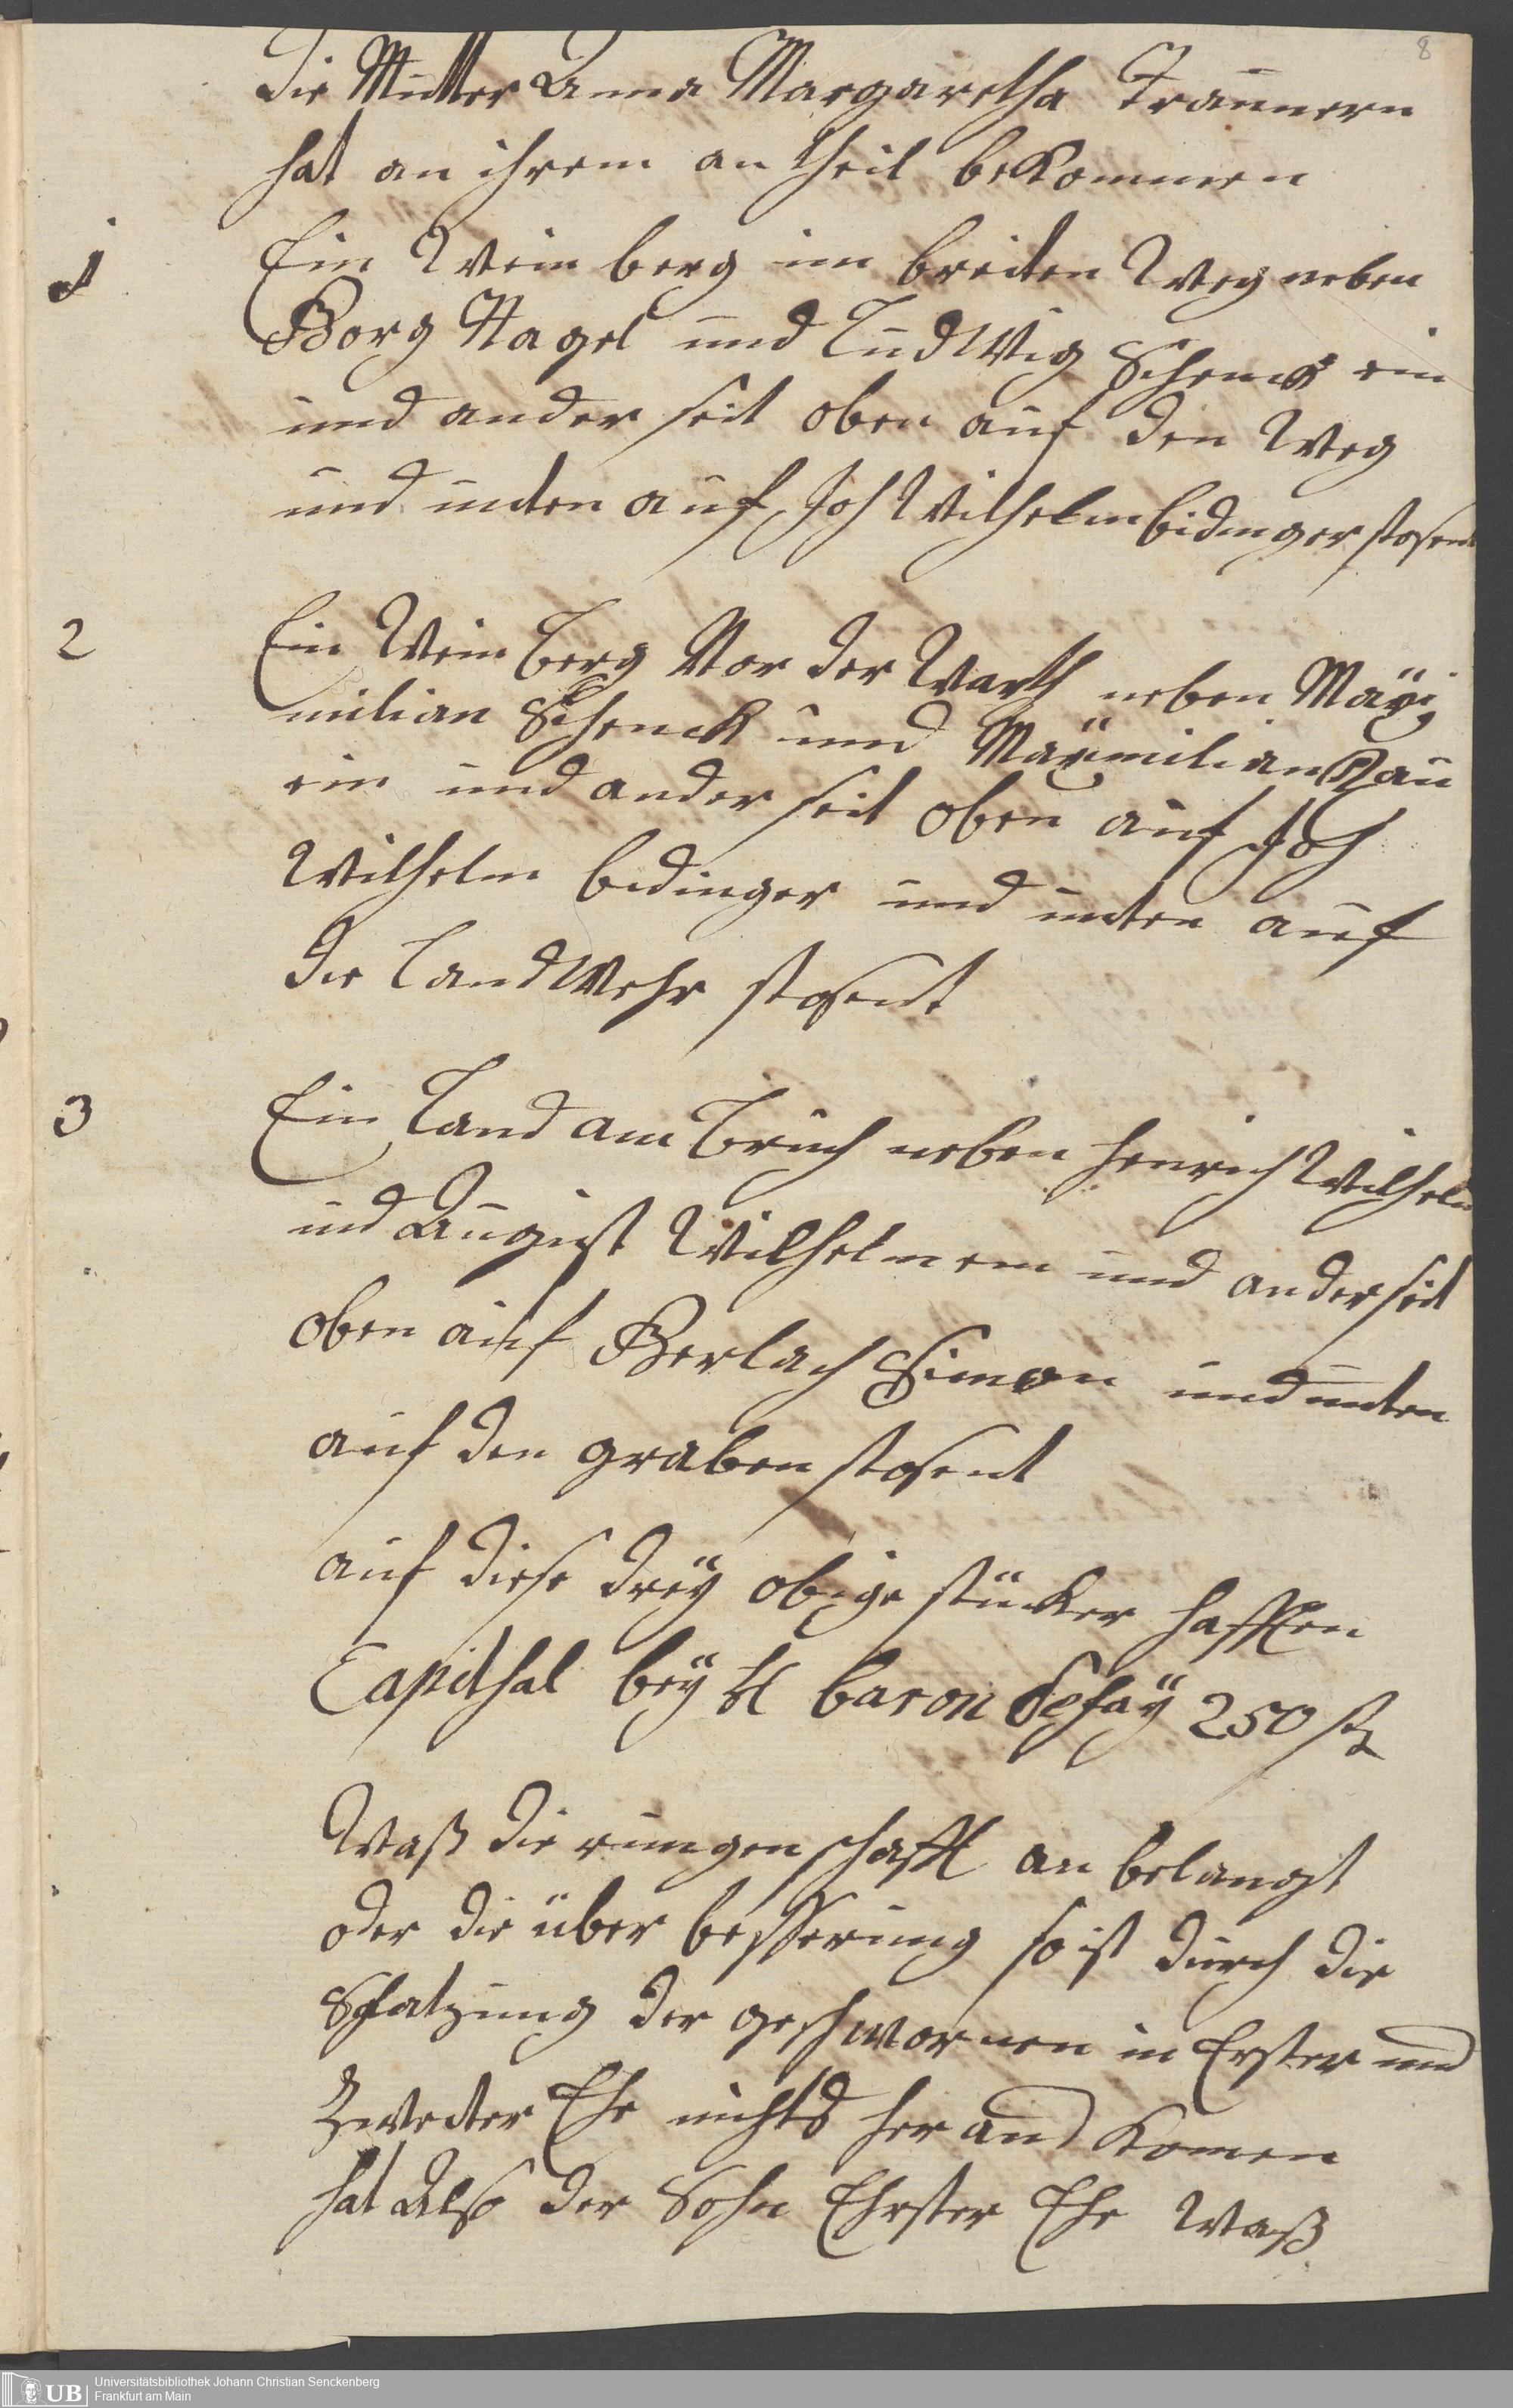 8
die Mutter Anna Margaretha Traunern
hat an ihrem an theil bekommen
1 Ein Wein berg im breiten Weg neben
Görg Nagel und Ludwig Schenck ein
und ander seit oben auf den Weg
und unten auf Joh Wilhelm bidinger stosent
2 Ein Wein berg Vor der Warth neben Maxi
milian Schenck und Maximilian Rau
ein und ander seit oben auf Joh
Wilhelm bidinger und unten auf
die Landwehr stosent
3 Ein Land am bruch neben Henrich Wilhelm
und August Wilhelm ein und ander seit
oben auf Gerlach Simon und unten
auf den graben stosent
auf diese dreÿ obige stücker hafften
Capidthal beÿ H baron 250 fl
Waß die rungenschafft an belangt
oder die über besserung so ist durch die
Schatzung der geschwornen in Erster und
Zweiter Ehe nichts her aus komen
hat Also der Sohn Ehrster Ehe Waß
UB Universitätsbibliothek Johann Christian Senckenberg
Frankfurt am Main